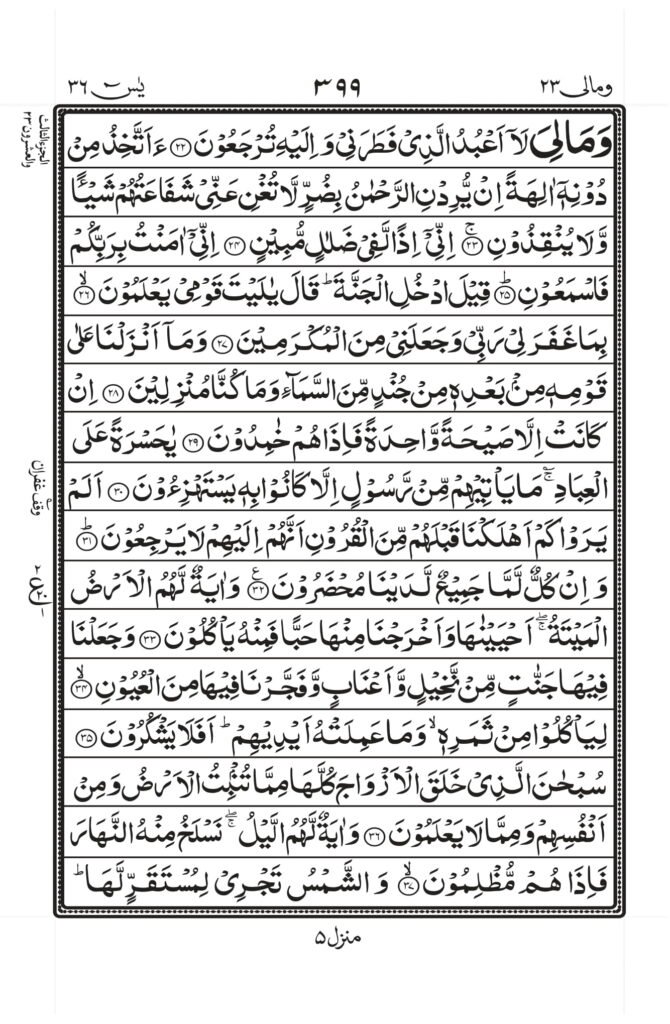 یٰسٓ ۳۶ ۳۹۹ ومالی ۲۳
الجزء الثالث والعشرون ۲۳
وَمَالِیَ لَاۤ اَعْبُدُ الَّذِیْ فَطَرَنِیْ وَ اِلَیْهِ تُرْجَعُوْنَ ﴿۲۲﴾ ءَاَتَّخِذُ مِنْ
دُوْنِهٖۤ اٰلِهَةً اِنْ یُّرِدْنِ الرَّحْمٰنُ بِضُرٍّ لَّا تُغْنِ عَنِّیْ شَفَاعَتُهُمْ شَیْـًٔا
وَّ لَا یُنْقِذُوْنِ ﴿۲۳﴾ۚ اِنِّیْۤ اِذًا لَّفِیْ ضَلٰلٍ مُّبِیْنٍ ﴿۲۴﴾ اِنِّیْۤ اٰمَنْتُ بِرَبِّكُمْ
فَاسْمَعُوْنِ ﴿۲۵﴾ؕ قِیْلَ ادْخُلِ الْجَنَّةَ ؕ قَالَ یٰلَیْتَ قَوْمِیْ یَعْلَمُوْنَ ﴿۲۶﴾ۙ
بِمَا غَفَرَ لِیْ رَبِّیْ وَ جَعَلَنِیْ مِنَ الْمُكْرَمِیْنَ ﴿۲۷﴾ وَ مَاۤ اَنْزَلْنَا عَلٰی
قَوْمِهٖ مِنْۢ بَعْدِهٖ مِنْ جُنْدٍ مِّنَ السَّمَآءِ وَ مَا كُنَّا مُنْزِلِیْنَ ﴿۲۸﴾ اِنْ
كَانَتْ اِلَّا صَیْحَةً وَّاحِدَةً فَاِذَا هُمْ خٰمِدُوْنَ ﴿۲۹﴾ یٰحَسْرَةً عَلَی
الْعِبَادِ ۚؔ مَا یَاْتِیْهِمْ مِّنْ رَّسُوْلٍ اِلَّا كَانُوْا بِهٖ یَسْتَهْزِءُوْنَ ﴿۳۰﴾ اَلَمْ
یَرَوْا كَمْ اَهْلَكْنَا قَبْلَهُمْ مِّنَ الْقُرُوْنِ اَنَّهُمْ اِلَیْهِمْ لَا یَرْجِعُوْنَ ﴿۳۱﴾ؕ
وقف غفران
وَ اِنْ كُلٌّ لَّمَّا جَمِیْعٌ لَّدَیْنَا مُحْضَرُوْنَ ﴿۳۲﴾ وَ اٰیَةٌ لَّهُمُ الْاَرْضُ
الْمَیْتَةُ ۚۖ اَحْیَیْنٰهَا وَ اَخْرَجْنَا مِنْهَا حَبًّا فَمِنْهُ یَاْكُلُوْنَ ﴿۳۳﴾ وَ جَعَلْنَا
فِیْهَا جَنّٰتٍ مِّنْ نَّخِیْلٍ وَّ اَعْنَابٍ وَّ فَجَّرْنَا فِیْهَا مِنَ الْعُیُوْنِ ﴿۳۴﴾ۙ
لِیَاْكُلُوْا مِنْ ثَمَرِهٖ ۙ وَ مَا عَمِلَتْهُ اَیْدِیْهِمْ ؕ اَفَلَا یَشْكُرُوْنَ ﴿۳۵﴾
سُبْحٰنَ الَّذِیْ خَلَقَ الْاَزْوَاجَ كُلَّهَا مِمَّا تُنْۢبِتُ الْاَرْضُ وَ مِنْ
اَنْفُسِهِمْ وَ مِمَّا لَا یَعْلَمُوْنَ ﴿۳۶﴾ وَ اٰیَةٌ لَّهُمُ الَّیْلُ ۚۖ نَسْلَخُ مِنْهُ النَّهَارَ
فَاِذَا هُمْ مُّظْلِمُوْنَ ﴿۳۷﴾ۙ وَ الشَّمْسُ تَجْرِیْ لِمُسْتَقَرٍّ لَّهَا ؕ
منزل ۵